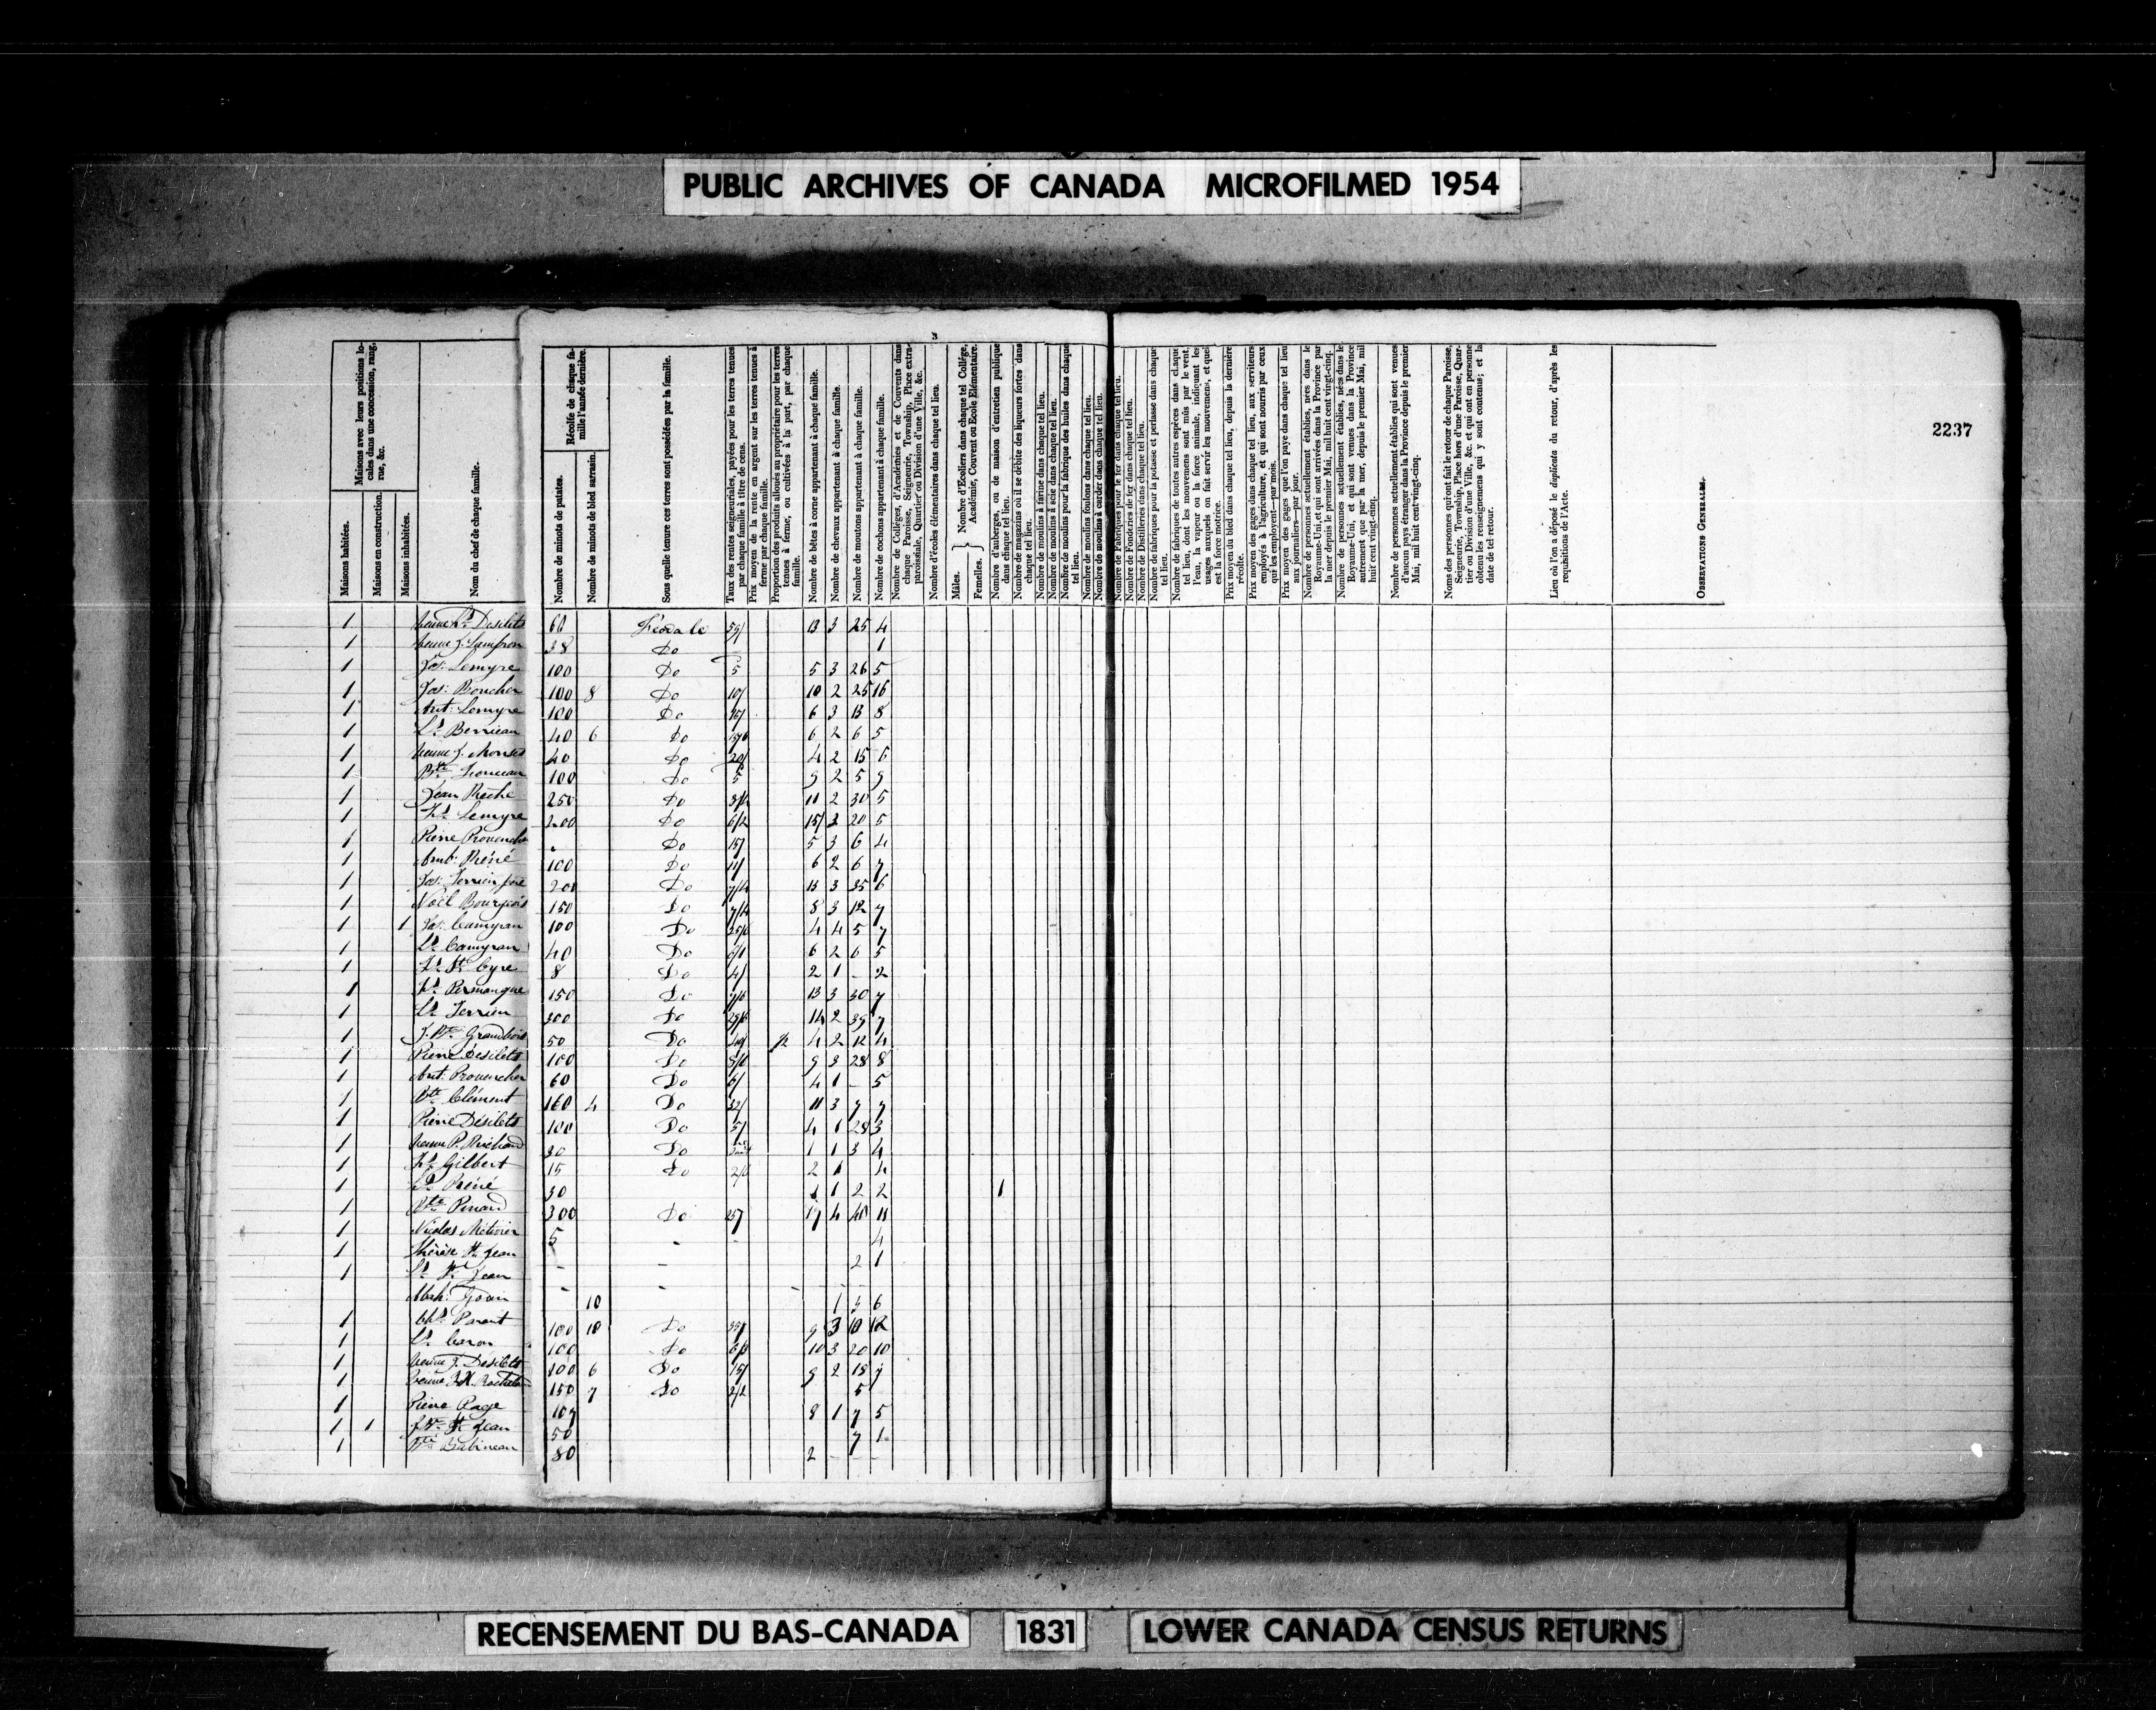 PUBLIC ARCHIVES OF CANADA MICROFILMED 1954
3
2237
Maisons avec leurs positions locales dans une concession, rang, rue, &c.
Maisons habitées.
Maisons en construction.
Maisons inhabitées.
Nom du chef de chaque famille.
Récolte de chaque famille l'année dernière.
Nombre de minots de patates.
Nombre de minots de bled sarrasin.
Sous quelle tenure ces terres sont possédées par la famille.
Taux des rentes seigneuriales, payées pour les terres tenues par chaque famille à titre de cens.
Prix moyen de la rente en argent sur les terres tenues à ferme par chaque famille.
Proportion des produits alloués au propriétaire pour les terres tenues à ferme, ou cultivées à la part, par chaque famille.
Nombre de bêtes à corne appartenant à chaque famille.
Nombre de chevaux appartenant à chaque famille.
Nombre de moutons appartenant à chaque famille.
Nombre de cochons appartenant à chaque famille.
Nombre de Colléges, d'Académies et de Couvents dans chaque Paroisse, Seigneurie, Township, Place extra-paroissiale, Quartier ou Division d'une Ville, &c.
Nombre d'écoles élémentaires dans chaque tel lieu.
Mâles. Femelles. Nombre d'Ecoliers dans chaque tel Collége, Académie, Couvent ou Ecole Elémentaire.
Nombre d'auberges, ou de maison d'entretien publique dans chaque tel lieu.
Nombre de magazins où il se débite des liqueurs fortes dans chaque tel lieu.
Nombre de moulins à farine dans chaque tel lieu.
Nombre de moulins à scie dans chaque tel lieu.
Nombre de moulins pour la fabrique des huiles dans chaque tel lieu.
Nombre de moulins foulons dans chaque tel lieu.
Nombre de moulins à carder dans chaque tel lieu.
Nombre de Fabriques pour le fer dans chaque tel lieu.
Nombre de Fonderies de fer dans chaque tel lieu.
Nombre de Distilleries dans chaque tel lieu.
Nombre de fabriques pour la potasse et perlasse dans chaque tel lieu.
Nombre de fabriques de toutes autres espèces dans chaque tel lieu, dont les mouvemens sont mûs par le vent, l'eau, la vapeur ou la force animale, indiquant les usages auxquels on fait servir les mouvemens, et quel est la force motrice.
Prix moyen du bled dans chaque tel lieu, depuis la dernière récolte.
Prix moyen des gages dans chaque tel lieu, aux serviteurs employés à l'agriculture, et qui sont nourris par ceux qui les employent—par mois.
Prix moyen des gages que l'on paye dans chaque tel lieu aux journaliers—par jour.
Nombre de personnes actuellement établies, nées dans le Royaume-Uni, et qui sont arrivées dans la Province par la mer depuis le premier Mai, mil huit cent vingt-cinq.
Nombre de personnes actuellement établies, nées dans le Royaume-Uni, et qui sont venues dans la Province autrement que par la mer, depuis le premier Mai, mil huit cent vingt-cinq.
Nombre de personnes actuellement établies qui sont venues d'aucun pays étranger dans la Province depuis le premier Mai, mil huit cent vingt-cinq.
Noms des personnes qui ont fait le retour de chaque Paroisse, Seigneurie, Township, Place hors d'une Paroisse, Quartier ou Division d'une Ville, &c. et qui ont en personne obtenu les renseignemens qui y sont contenus; et la date de tel retour.
Lieu où l'on a déposé le duplicata du retour, d'après les requisitions de l'Acte.
OBSERVATIONS GENERALES.
1 Desilets 60 Féodale 13 3 25 4
1 38 Do 1
1 Jos: Lemyre 100 Do 5 5 3 26 5
1 Jos: Boucher 100 8 Do 10/ 10 2 25 16
1 Ant: Lemyre 100 Do 6 3 13 8
1 40 6 Do 6 2 6 5
1 40 Do 20/ 4 2 15 6
1 100 Do 5 9 2 5 9
1 Jean 250 Do 11 2 30 5
1 Lemyre 200 Do 6/2 20 5
1 Pierre Provencher Do 15/ 5 3 6 4
1 100 Do 6 2 6 7
1 Jos: Terrien père 200 Do 13 3 35 6
1 Noël Bourgeois 150 Do 8 3 12 7
1 1 Jos: 100 Do 4 4 5 7
1 40 Do 6 2 6 5
1 8 Do 4/ 2 1 - 2
1 150 Do 13 3 30 7
1 Terrien 300 Do 14 2 7
1 Grandbois 50 Do 4 2 12 4
1 Pierre Desilets 100 Do 9 3 28 8
1 Ant: Provencher 60 Do 4 1 - 5
1 Bte Clément 160 4 Do 32/ 11 3 7 7
1 Pierre Désilets 100 Do 5/ 4 1 28 3
1 Do 1 1 3 4
1 Gilbert 15 Do 2 1 4
1 30 1 2 2 1
1 Bte Pinard 300 Do 17 4 40 11
1 Nicolas 5 - 4
1 Thérèse St. Jean - - 2 1
1 St. Jean - - -
10 1 5 6
1 Parent 100 10 Do 9 3 10 12
1 Caron 100 Do 10 3 20 10
1 Desilets 100 6 Do 15/ 9 2 18 7
1 150 7 Do 2/2 5
1 Pierre 107 8 1 7 5
1 1 St. Jean 50 7 1
1 Bte Babineau 80 2 - -
RECENSEMENT DU BAS-CANADA 1831 LOWER CANADA CENSUS RETURNS